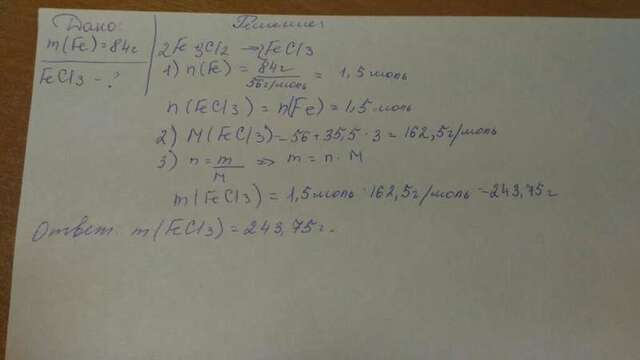 Дано:
m(Fe)=84г
FeCl3 - ?
Решение:
2Fe 3Cl2 → 2FeCl3
1) n(Fe) = 84г / 56г/моль = 1,5 моль
n(FeCl3) = n(Fe) = 1,5 моль
2) M(FeCl3) = 56 + 35,5 · 3 = 162,5г/моль
3) n = m / M => m = n · M
m(FeCl3) = 1,5 моль · 162,5г/моль - 243,75г
Ответ. m(FeCl3) = 243,75г.